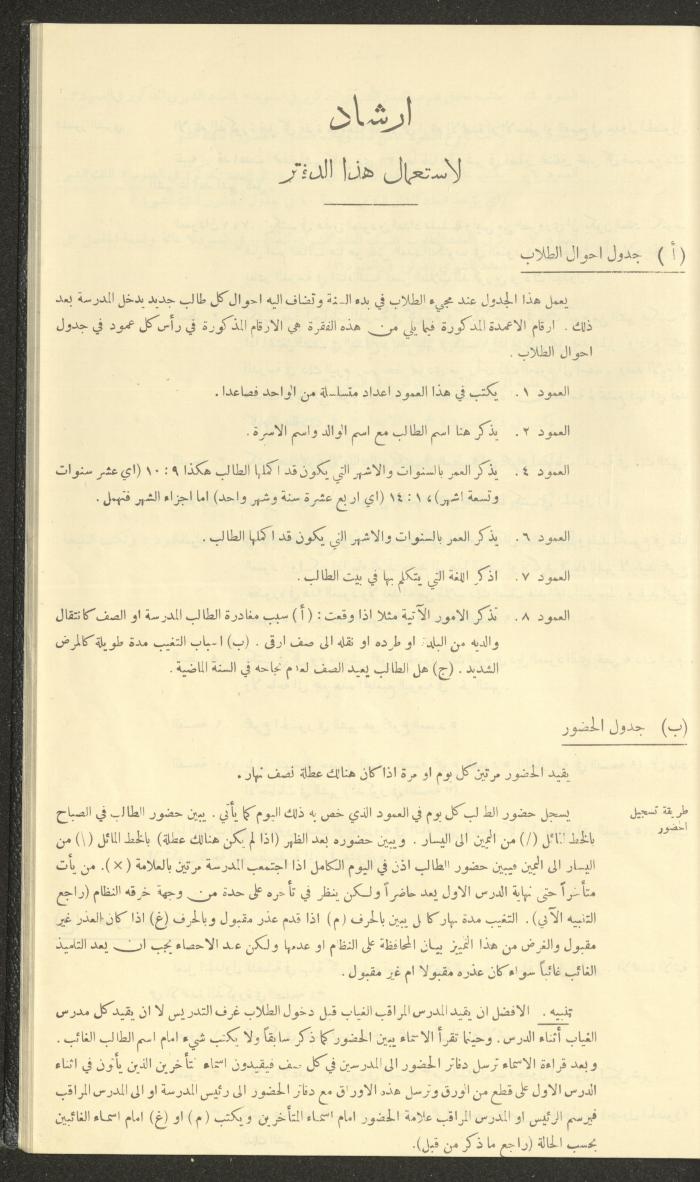 ارشاد
لاستعمال هذا الدفتر
(أ) جدول احوال الطلاب
يعمل هذا الجدول عند مجيء الطلاب في بدء السنة وتضاف اليه احوال كل طالب جديد يدخل المدرسة بعد
ذلك . ارقام الاعمدة المذكورة فيما يلي من هذه الفقرة هي الارقام المذكورة في رأس كل عمود في جدول
احوال الطلاب .
العمود ١. يكتب في هذا العمود اعداد متسلسلة من الواحد فصاعدا .
العمود ٢. يذكر هنا اسم الطالب مع اسم الوالد واسم الاسرة .
العمود ٤. يذكر العمر بالسنوات والاشهر التي يكون قد اكملها الطالب هكذا ٩ : ١٠ (اي عشر سنوات
وتسعة اشهر) ، ١ : ١٤ (اي اربع عشرة سنة وشهر واحد) اما اجزاء الشهر فتهمل .
العمود ٦. يذكر العمر بالسنوات والاشهر التي يكون قد اكملها الطالب .
العمود ٧. اذكر اللغة التي يتكلم بها في بيت الطالب .
العمود ٨. تذكر الامور الآتية مثلا اذا وقعت : (أ) سبب مغادرة الطالب المدرسة او الصف كانتقال
والديه من البلد او طرده او نقله الى صف ارقى . (ب) اسباب التغيب مدة طويلة كالمرض
الشديد . (ج) هل الطالب يعيد الصف لعدم نجاحه في السنة الماضية .
(ب) جدول الحضور
يقيد الحضور مرتين كل يوم او مرة اذا كان هنالك عطلة نصف نهار .
طريقة تسجيل
الحضور
يسجل حضور الطالب كل يوم في العمود الذي خص به ذلك اليوم كما يأتي . يبين حضور الطالب في الصباح
بالخط المائل (/) من اليمين الى اليسار . ويبين حضوره بعد الظهر (اذا لم يكن هنالك عطلة) بالخط المائل (\) من
اليسار الى اليمين فيبين حضور الطالب اذن في اليوم الكامل اذا اجتمعب المدرسة مرتين بالعلامة (×). من يأت
متأخراً حتى نهاية الدرس الاول يعد حاضراً ولكن ينظر في تأخره على حدة من وجهة خرقه النظام (راجع
التنبيه الآتي) . التغيب مدة نهار كامل يبين بالحرف (م) اذا قدم عذر مقبول وبالحرف (غ) اذا كان العذر غير
مقبول والغرض من هذا التمييز بيان المحافظة على النظام او عدمها ولكن عند الاحصاء يجب ان يعد التلميذ
الغائب غائباً سواء كان عذره مقبولا ام غير مقبول .
تنبيه . الافضل ان يقيد المدرس المراقب الغياب قبل دخول الطلاب غرف التدريس لا ان يقيد كل مدرس
الغياب أثناء الدرس . وحينما تقرأ الاسماء يبين الحضور كما ذكر سابقاً ولا يكتب شيء امام اسم الطالب الغائب .
وبعد قراءة الاسماء ترسل دفاتر الحضور الى المدرسين في كل صف فيقيدون اسماء المتأخرين الذين يأتون في اثناء
الدرس الاول على قطع من الورق وترسل هذه الاوراق مع دفاتر الحضور الى رئيس المدرسة او الى المدرس المراقب
فيرسم الرئيس او المدرس المراقب علامة الحضور امام اسماء المتأخرين ويكتب (م) او (غ) امام اسماء الغائبين
بحسب الحالة (راجع ما ذكر من قبل).